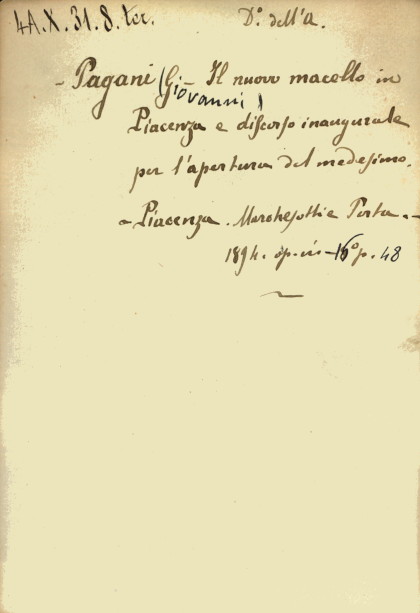 4A.X.31.8.ter. Dº. dell'A.
- Pagani (Giovanni) - Il nuovo macello in
Piacenza e discorso inaugurale
per l'apertura del medesimo.
- Piacenza. Marchesotti e Porta. -
1894. op. in-16º p. 48